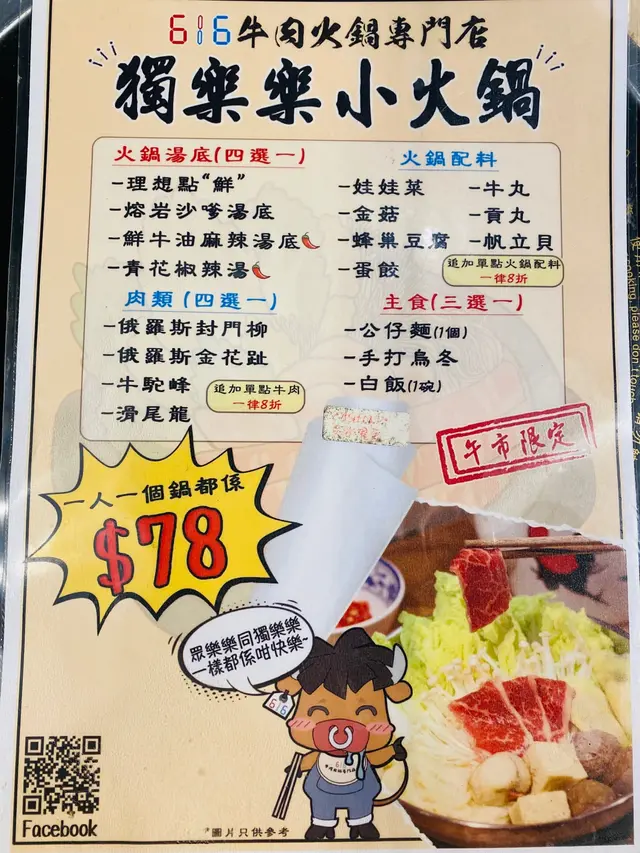 616牛肉火鍋專門店
獨樂樂小火鍋
火鍋湯底(四選一)
-理想點“鮮”
-熔岩沙嗲湯底
-鮮牛油麻辣湯底
-青花椒辣湯
火鍋配料
-娃娃菜 -牛丸
-金菇 -貢丸
-蜂巢豆腐 -帆立貝
-蛋餃
追加單點火鍋配料
一律8折
肉類(四選一)
-俄羅斯封門柳
-俄羅斯金花趾
-牛駝峰
-滑尾龍
追加單點牛肉
一律8折
主食(三選一)
-公仔麵(1個)
-手打烏冬
-白飯(1碗)
午市限定
一人一個鍋都係
$78
眾樂樂同獨樂樂
一樣都係咁快樂~
616
Facebook
*圖片只供參考